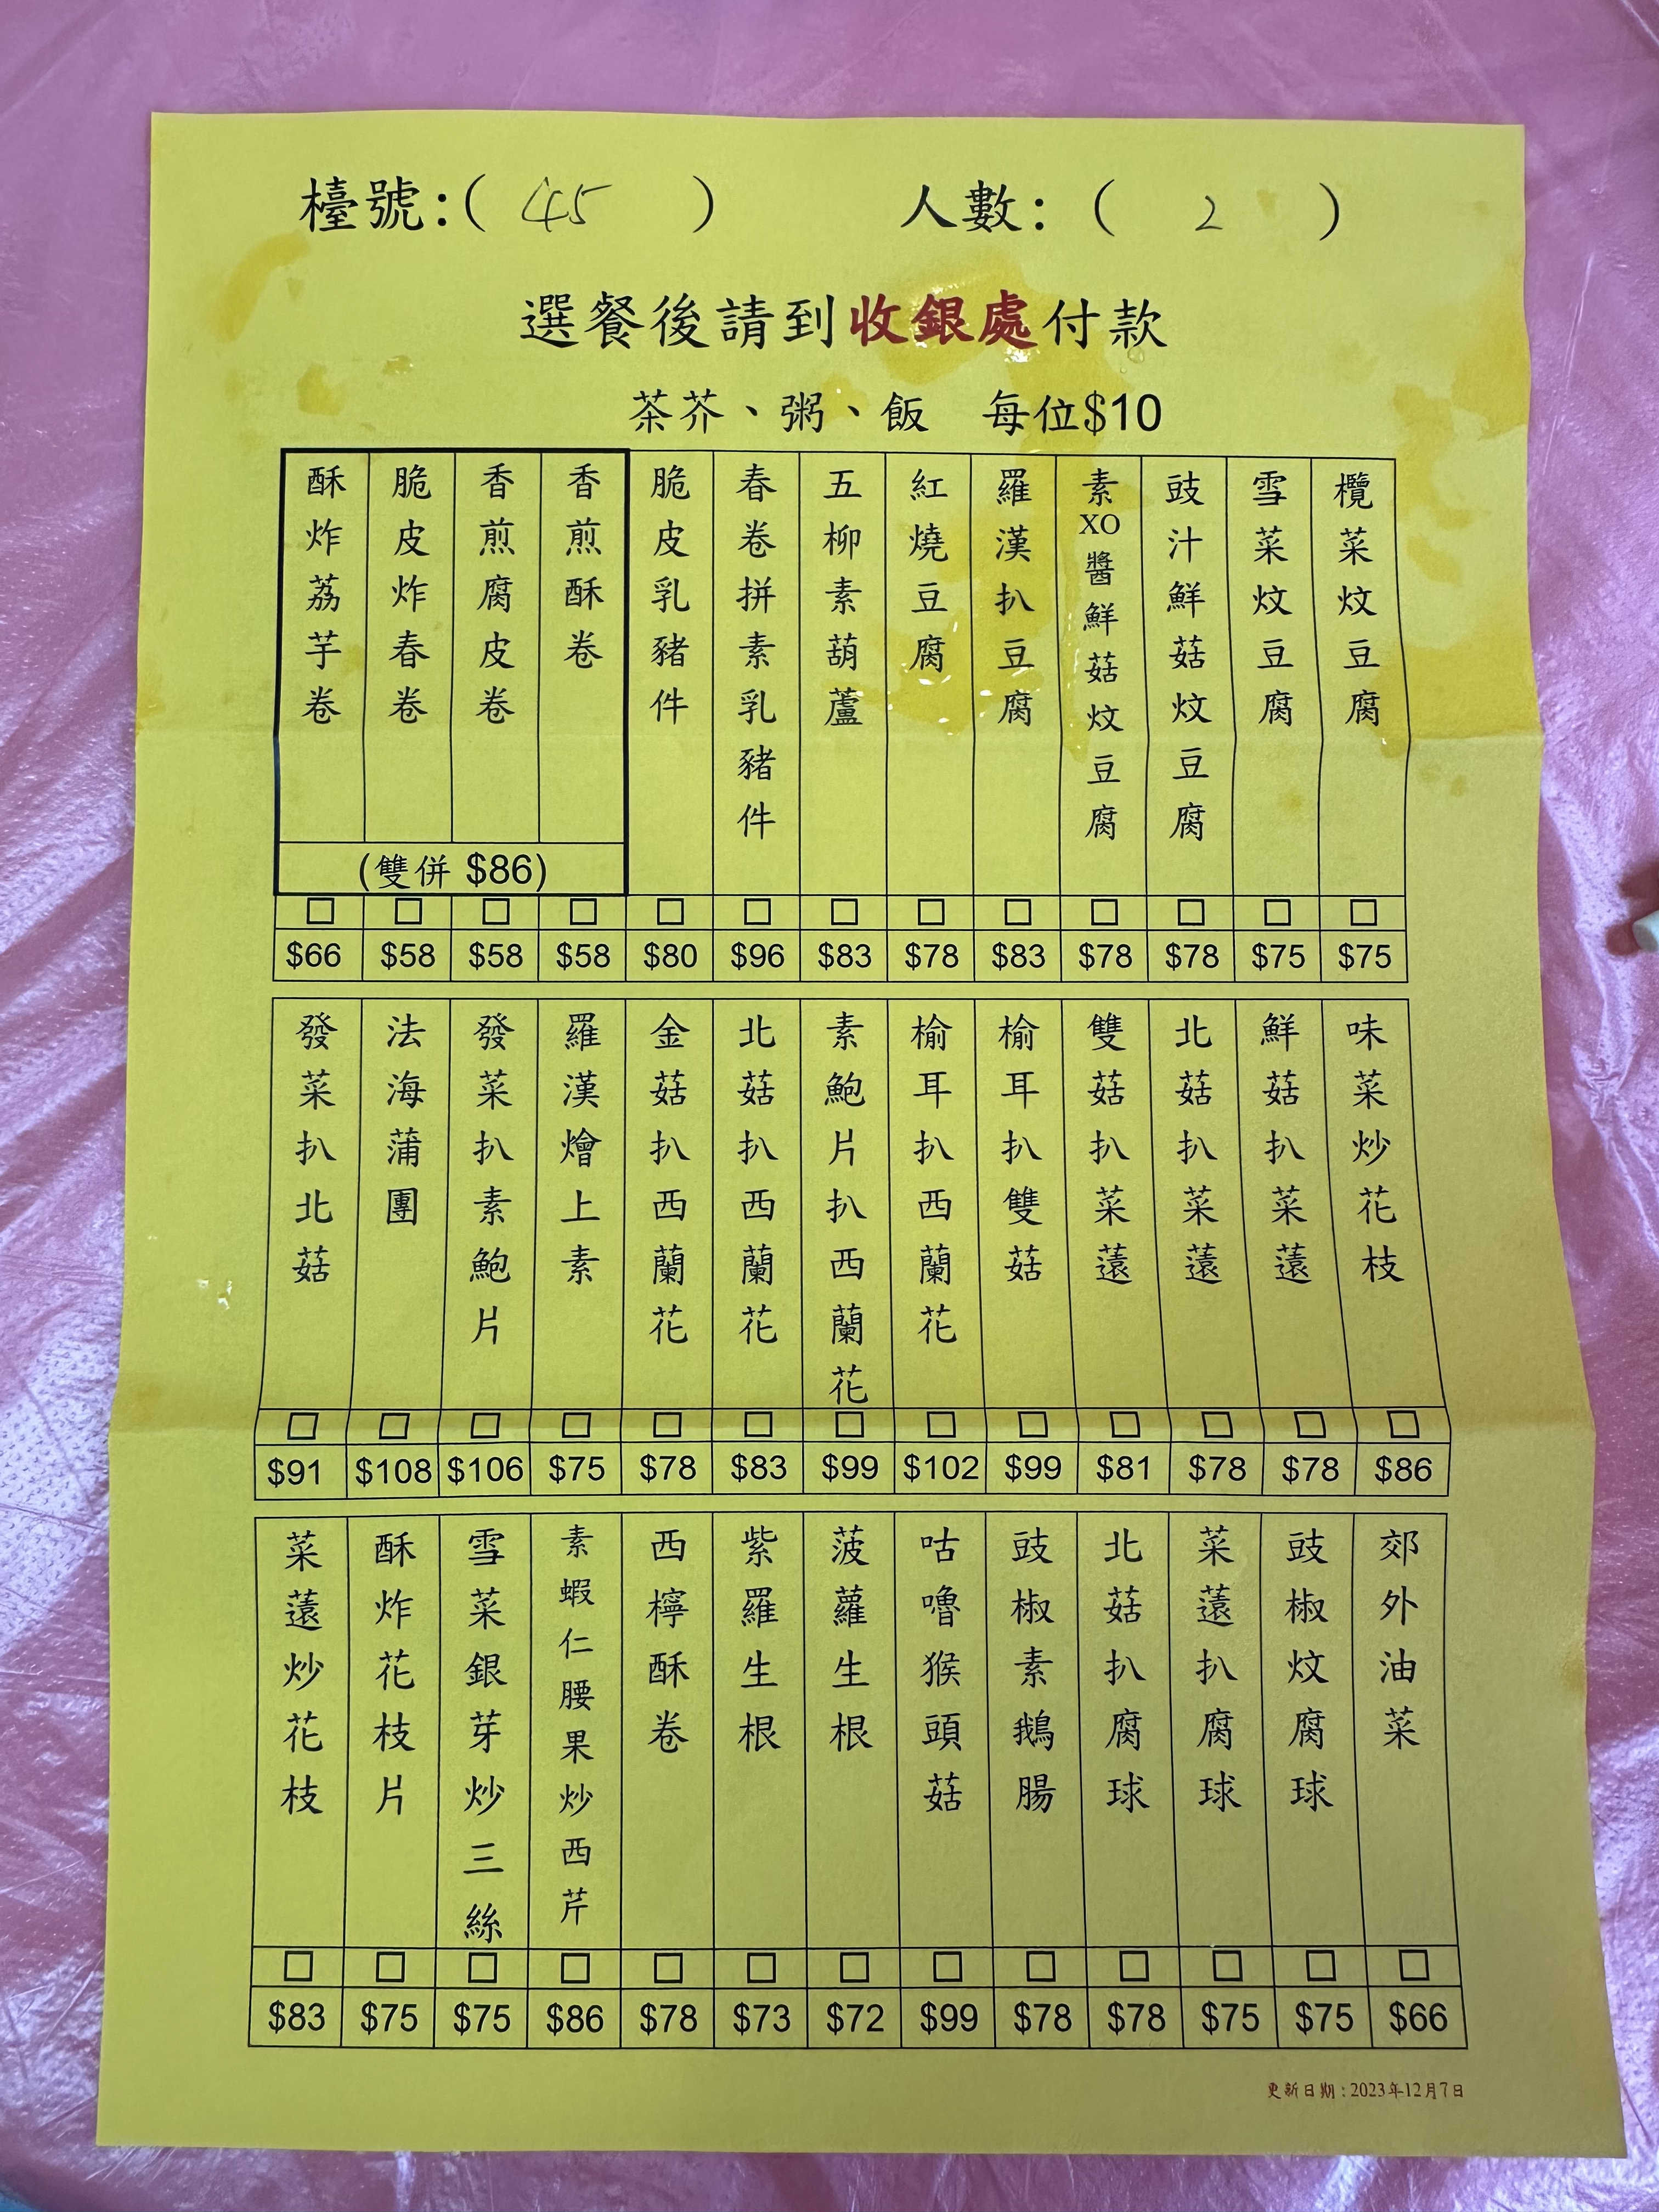 檯號:( 45 )
人數: ( 2 )
選餐後請到收銀處付款
茶芥、粥、飯 每位$10
欖菜炆豆腐 □ $75
雪菜炆豆腐 □ $75
豉汁鮮菇炆豆腐 □ $78
素XO醬鮮菇炆豆腐 □ $78
羅漢扒豆腐 □ $83
紅燒豆腐 □ $78
五柳素葫蘆 □ $83
春卷拼素乳豬件 □ $96
脆皮乳豬件 □ $80
香煎酥卷 □ $58
香煎腐皮卷 □ $58
脆皮炸春卷 □ $58
酥炸荔芋卷 □ $66
(雙併 $86)
味菜炒花枝 □ $86
鮮菇扒菜薳 □ $78
北菇扒菜薳 □ $78
雙菇扒菜薳 □ $81
榆耳扒雙菇 □ $99
榆耳扒西蘭花 □ $102
素鮑片扒西蘭花 □ $99
北菇扒西蘭花 □ $83
金菇扒西蘭花 □ $78
羅漢燴上素 □ $75
發菜扒素鮑片 □ $106
法海蒲團 □ $108
發菜扒北菇 □ $91
郊外油菜 □ $66
豉椒炆腐球 □ $75
菜薳扒腐球 □ $75
北菇扒腐球 □ $78
豉椒素鵝腸 □ $78
咕嚕猴頭菇 □ $99
菠蘿生根 □ $72
紫羅生根 □ $73
西檸酥卷 □ $78
素蝦仁腰果炒西芹 □ $86
雪菜銀芽炒三絲 □ $75
酥炸花枝片 □ $75
菜薳炒花枝 □ $83
更新日期:2023年12月7日